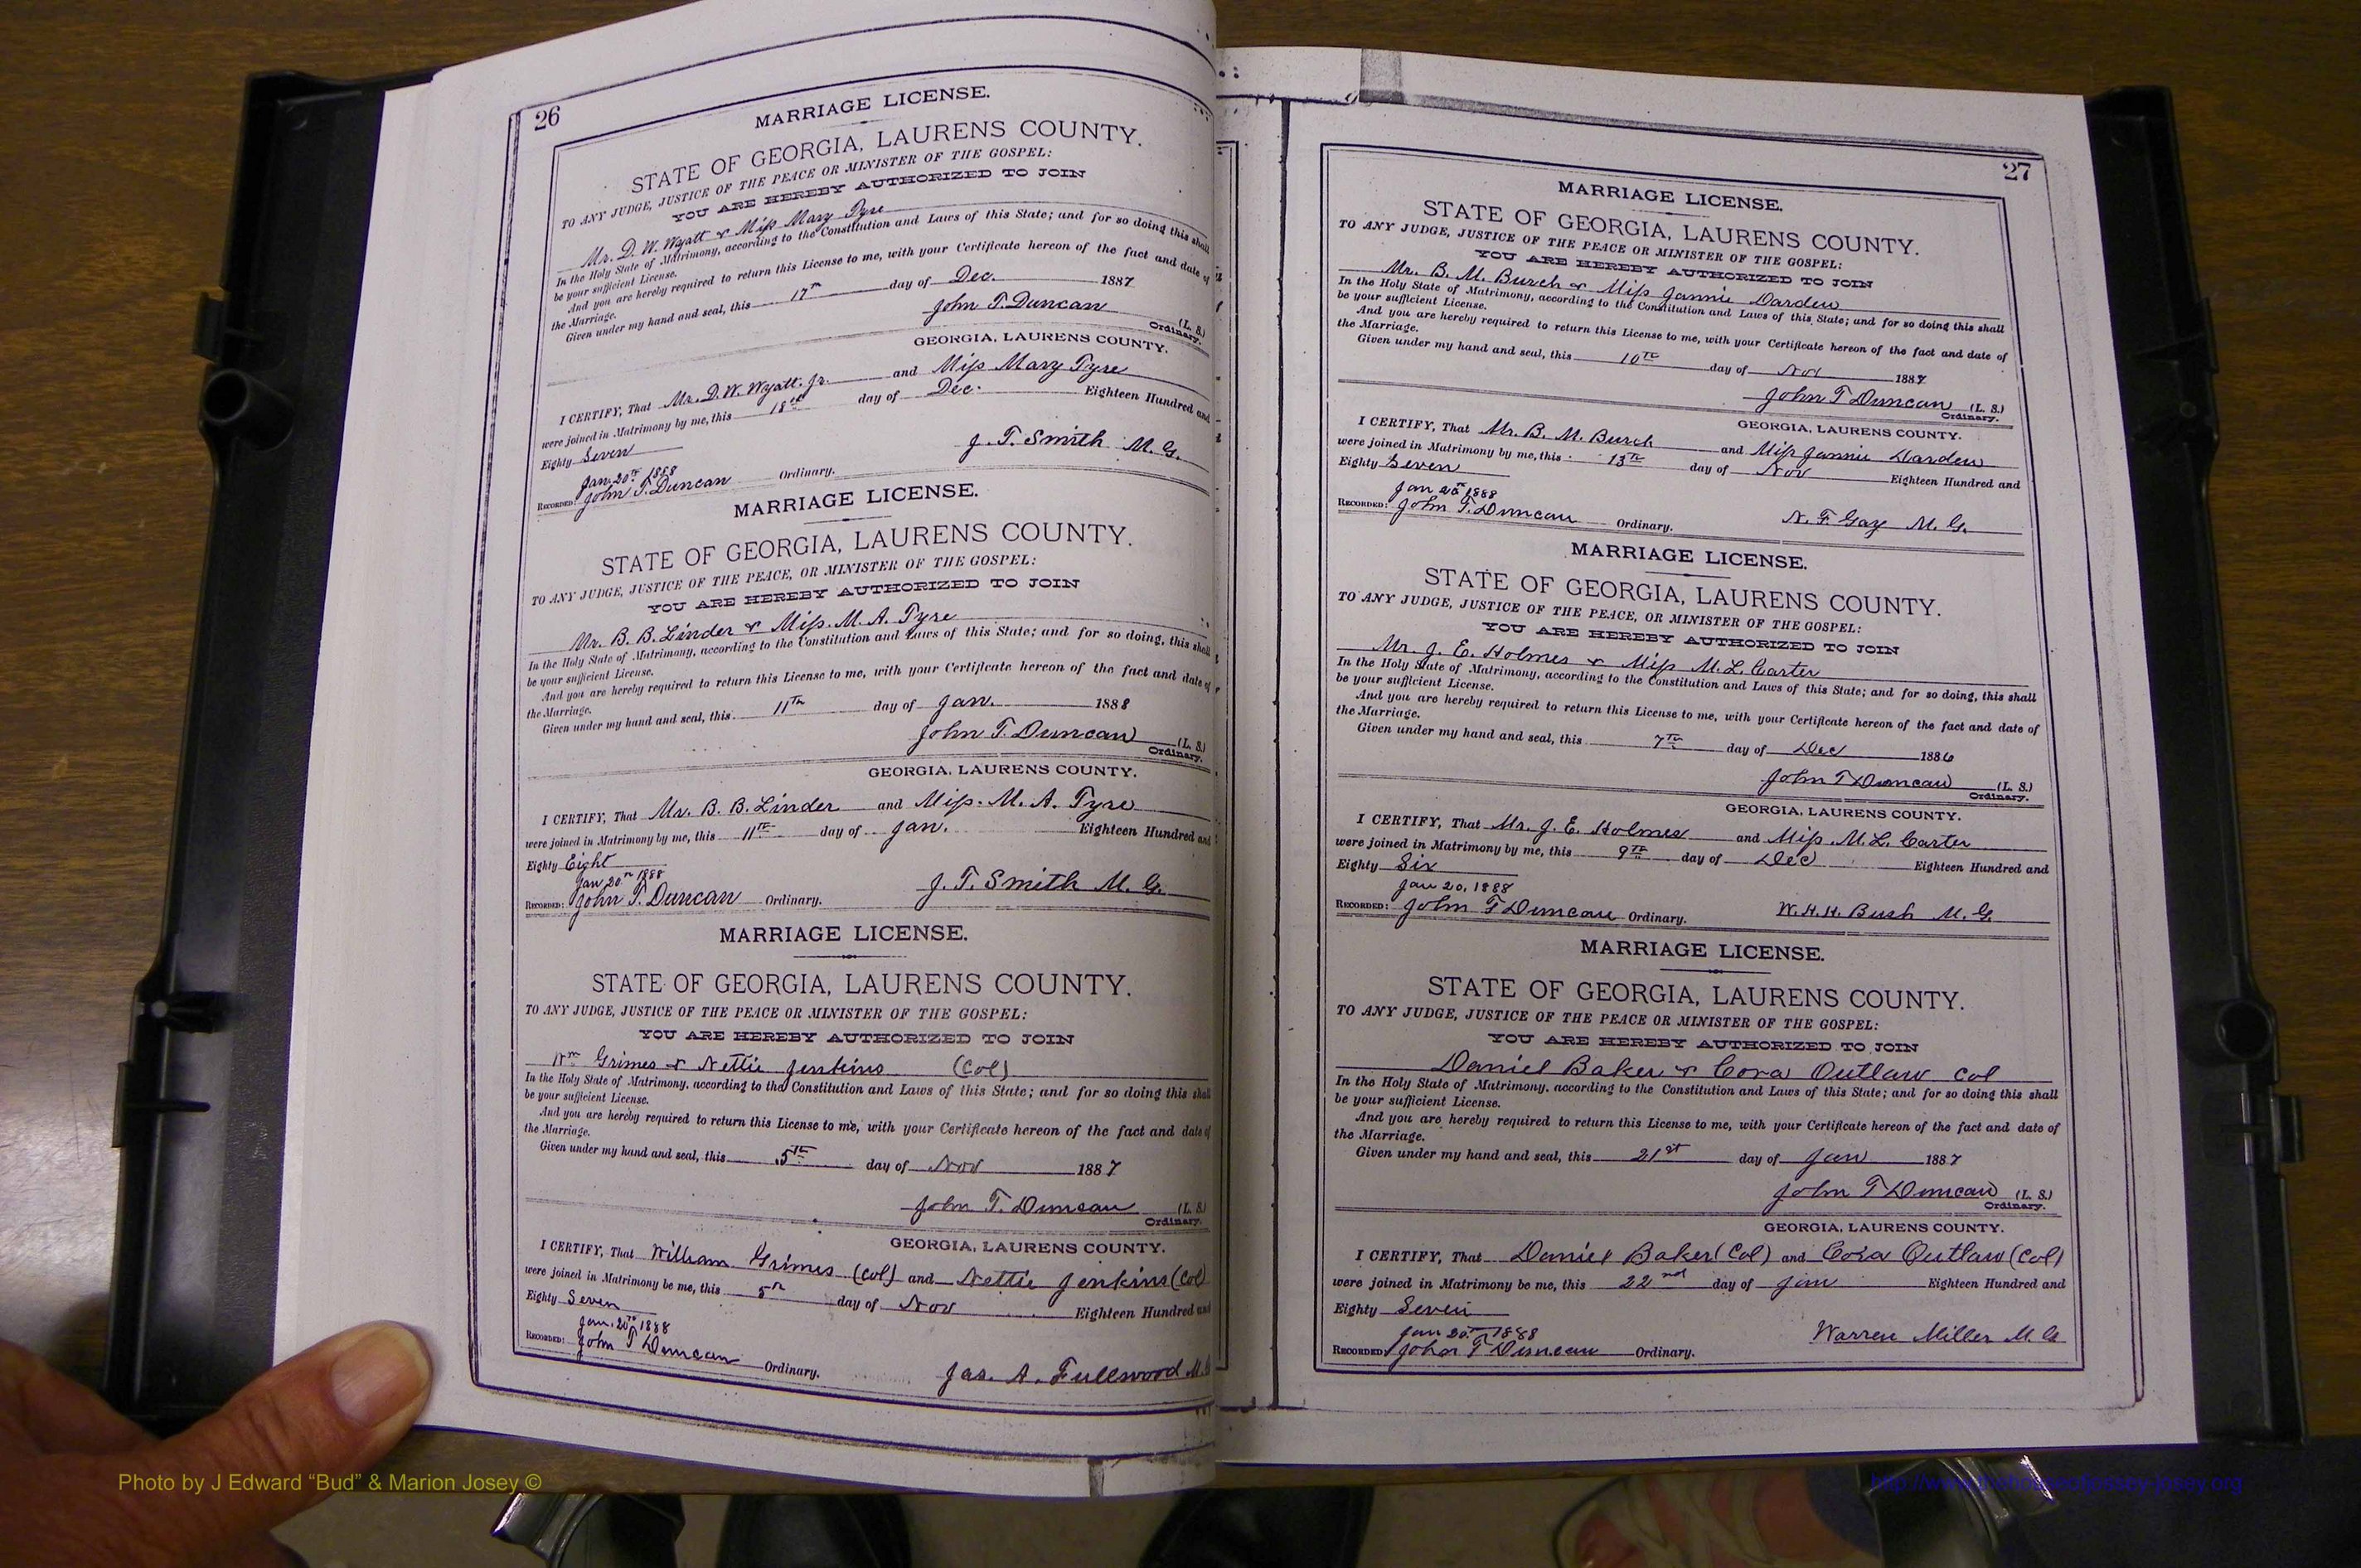 26
MARRIAGE LICENSE.
STATE OF GEORGIA, LAURENS COUNTY.
TO ANY JUDGE, JUSTICE OF THE PEACE OR MINISTER OF THE GOSPEL:
YOU ARE HEREBY AUTHORIZED TO JOIN
Mr. D. W. Wyatt & Miss Mary Tyre
In the Holy State of Matrimony, according to the Constitution and Laws of this State; and for so doing this shall
be your sufficient License.
And you are hereby required to return this License to me, with your Certificate hereon of the fact and date of
the Marriage.
Given under my hand and seal, this 17th day of Dec. 1887
John T. Duncan (L. S.)
Ordinary.
GEORGIA, LAURENS COUNTY.
I CERTIFY, That Mr. D. W. Wyatt, Jr. and Miss Mary Tyre
were joined in Matrimony by me, this 18th day of Dec. Eighteen Hundred and
Eighty Seven
J. T. Smith M. G.
Jan. 20th 1888
RECORDED: John T. Duncan Ordinary.
MARRIAGE LICENSE.
STATE OF GEORGIA, LAURENS COUNTY.
TO ANY JUDGE, JUSTICE OF THE PEACE, OR MINISTER OF THE GOSPEL:
YOU ARE HEREBY AUTHORIZED TO JOIN
Mr. B. B. Linder & Miss. M. A. Tyre
In the Holy State of Matrimony, according to the Constitution and Laws of this State; and for so doing, this shall
be your sufficient License.
And you are hereby required to return this License to me, with your Certificate hereon of the fact and date of
the Marriage.
Given under my hand and seal, this 11th day of Jan. 1888
John T. Duncan (L. S.)
Ordinary.
GEORGIA, LAURENS COUNTY.
I CERTIFY, That Mr. B. B. Linder and Miss. M. A. Tyre
were joined in Matrimony by me, this 11th day of Jan. Eighteen Hundred and
Eighty Eight
Jan 20th 1888
J. T. Smith M. G.
RECORDED: John T. Duncan Ordinary.
MARRIAGE LICENSE.
STATE OF GEORGIA, LAURENS COUNTY.
TO ANY JUDGE, JUSTICE OF THE PEACE OR MINISTER OF THE GOSPEL:
YOU ARE HEREBY AUTHORIZED TO JOIN
Wm Grimes & Nettie Jenkins (Col)
In the Holy State of Matrimony, according to the Constitution and Laws of this State; and for so doing this shall
be your sufficient License.
And you are hereby required to return this License to me, with your Certificate hereon of the fact and date of
the Marriage.
Given under my hand and seal, this 5th day of Nov 1887
John T. Duncan (L. S.)
Ordinary.
GEORGIA, LAURENS COUNTY.
I CERTIFY, That William Grimes (Col) and Nettie Jenkins (Col)
were joined in Matrimony be me, this 5th day of Nov Eighteen Hundred and
Eighty Seven
Jan. 20th 1888
RECORDED: John T Duncan Ordinary.
Jas. A. Fullwood M. G
27
MARRIAGE LICENSE.
STATE OF GEORGIA, LAURENS COUNTY.
TO ANY JUDGE, JUSTICE OF THE PEACE OR MINISTER OF THE GOSPEL:
YOU ARE HEREBY AUTHORIZED TO JOIN
Mr. B. M. Burch & Miss Jannie Darden
In the Holy State of Matrimony, according to the Constitution and Laws of this State; and for so doing this shall
be your sufficient License.
And you are hereby required to return this License to me, with your Certificate hereon of the fact and date of
the Marriage.
Given under my hand and seal, this 10th day of Nov 1887
John T Duncan (L. S.)
Ordinary.
GEORGIA, LAURENS COUNTY.
I CERTIFY, That Mr. B. M. Burch and Miss Jannie Darden
were joined in Matrimony by me, this 13th day of Nov Eighteen Hundred and
Eighty Seven
Jan 20th 1888
RECORDED: John T. Duncan Ordinary.
N. F. Gay M. G.
MARRIAGE LICENSE.
STATE OF GEORGIA, LAURENS COUNTY.
TO ANY JUDGE, JUSTICE OF THE PEACE, OR MINISTER OF THE GOSPEL:
YOU ARE HEREBY AUTHORIZED TO JOIN
Mr. J. E. Holmes & Miss M. L. Carter
In the Holy State of Matrimony, according to the Constitution and Laws of this State; and for so doing, this shall
be your sufficient License.
And you are hereby required to return this License to me, with your Certificate hereon of the fact and date of
the Marriage.
Given under my hand and seal, this 7th day of Dec 1886
John T Duncan (L. S.)
Ordinary.
GEORGIA, LAURENS COUNTY.
I CERTIFY, That Mr. J. E. Holmes and Miss. M. L. Carter
were joined in Matrimony by me, this 9th day of Dec Eighteen Hundred and
Eighty Six
Jan 20, 1888
RECORDED: John T Duncan Ordinary.
W. H. H. Bush M. G.
MARRIAGE LICENSE.
STATE OF GEORGIA, LAURENS COUNTY.
TO ANY JUDGE, JUSTICE OF THE PEACE OR MINISTER OF THE GOSPEL:
YOU ARE HEREBY AUTHORIZED TO JOIN
Daniel Baker & Cora Outlaw Col
In the Holy State of Matrimony, according to the Constitution and Laws of this State; and for so doing this shall
be your sufficient License.
And you are hereby required to return this License to me, with your Certificate hereon of the fact and date of
the Marriage.
Given under my hand and seal, this 21st day of Jan 1887
John T Duncan (L. S.)
Ordinary.
GEORGIA, LAURENS COUNTY.
I CERTIFY, That Daniel Baker (Col) and Cora Outlaw (Col)
were joined in Matrimony be me, this 22nd day of Jan Eighteen Hundred and
Eighty Seven
Jan 20th 1888
Warren Miller M. G
RECORDED John T Duncan Ordinary.
Photo by J Edward “Bud” & Marion Josey ©